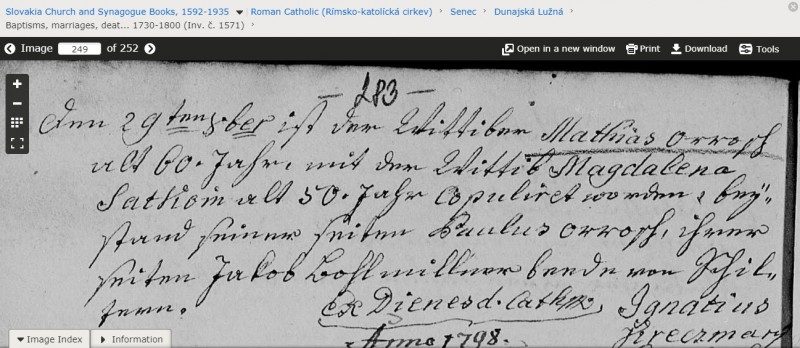 Slovakia Church and Synagogue Books, 1592-1935 Roman Catholic (Rímsko-katolícká cirkev) Senec Dunajská Lužná
Baptisms, marriages, deat... 1730-1800 (Inv. č. 1571)
Image 249 of 252 Open in a new window Print Download Tools
- 283 -
Den 29ten 8ber ist der Wittiber Mathias Orrosch
alt 60. Jahr, mit der Wittib Magdalena
alt 50. Jahr Copuliret worden, beÿ-
stand seiner seiten Paulus Orrosch, ihrer
seiten Jakob Bohlmillner beede von Schil-
tern.
Ignatius
Anno 1798. Kreczmary
Image Index Information